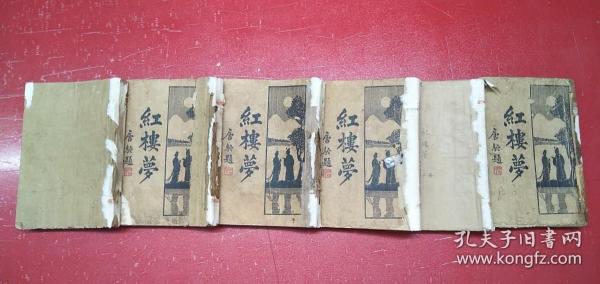 紅樓夢
唐𬬻題
紅樓夢
題
紅樓夢
題
紅樓夢
題
孔夫子旧书网
www.kongfz.com